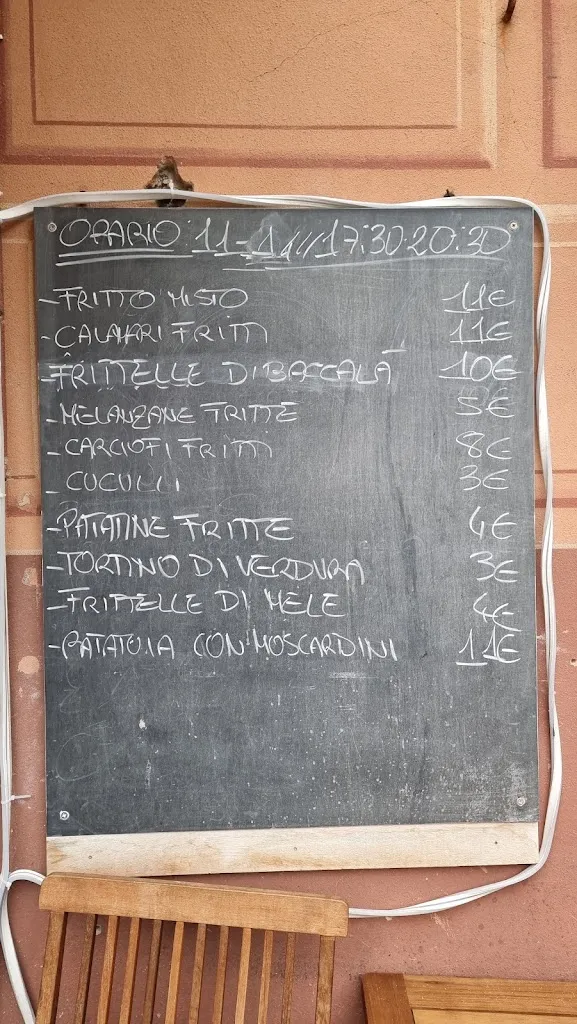 ORARIO: 11-14 // 17:30-20:30
-FRITTO MISTO 11€
-CALAMARI FRITTI 11€
-FRITTELLE DI BACCALÀ 10€
-MELANZANE FRITTE 5€
-CARCIOFI FRITTI 8€
-CUCULLI 3€
-PATATINE FRITTE 4€
-TORTINO DI VERDURA 3€
-FRITTELLE DI MELE 4€
-RATATUIA CON MOSCARDINI 11€